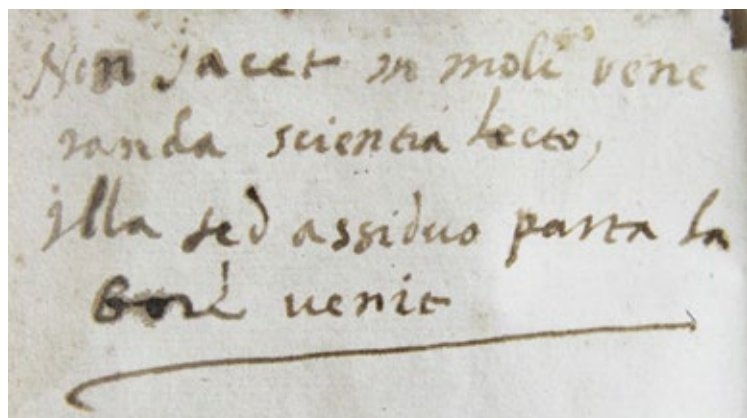 Non jacet in moli vene
randa scientia lecto,
illa sed assiduo parta la
bore venit